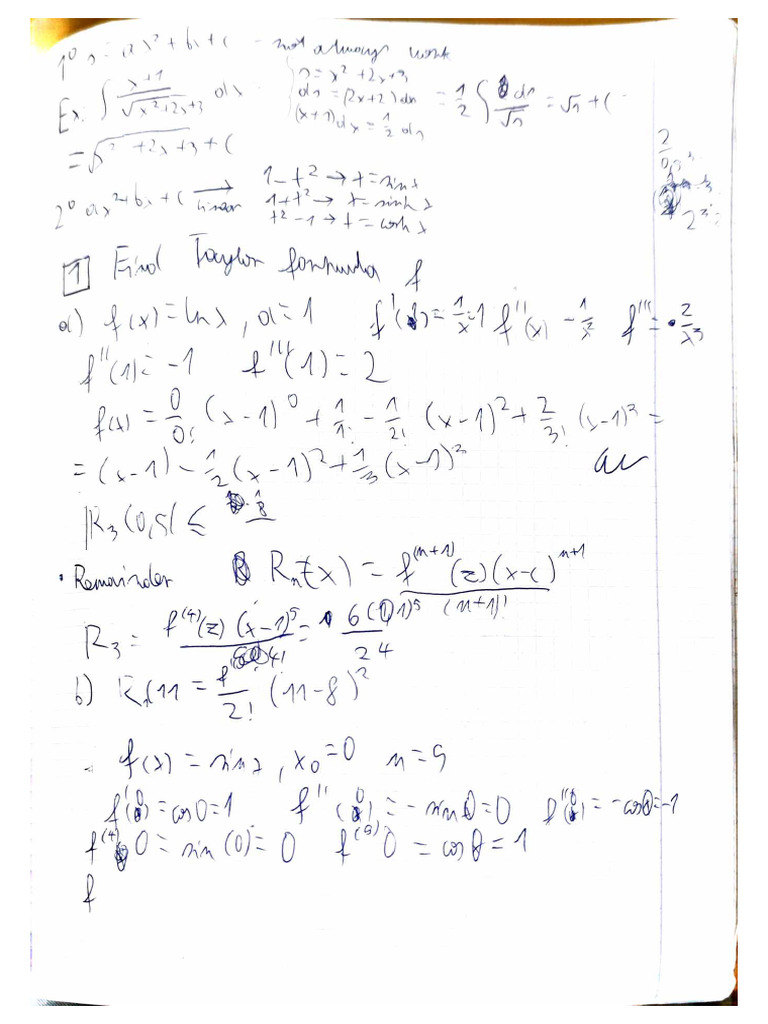 1⁰ s = ax² + bx + c - not always work
Ex: ∫ x+1/√x²+2x+3 dx
s = x² + 2x + 3
ds = (2x+2) dx
(x+1) dx = 1/2 ds
= 1/2 ∫ ds/√s = √s + C
= √x² + 2x + 3 + C
2⁰ ax² + bx + c → linear
1 - t² → t = sin x
1 + t² → t = sinh x
t² - 1 → t = cosh x
1 Find Taylor formula f
a) f(x) = ln x, a = 1 f'( ) = 1/x = 1 f''(x) - 1/x f''' = 2/x³
f''(1) = -1 f'''(1) = 2
f(x) = 0/0! (x-1)⁰ + 1/1! - 1/2! (x-1)² + 2/3! (x-1)³ =
= (x-1) - 1/2 (x-1)² + 1/3 (x-1)³
|R₃(0,5)| ≤ 1/8
• Remainder Rₙ(x) = f⁽ⁿ⁺¹⁾(z)(x-c)ⁿ⁺¹/(n+1)!
R₃ = f⁽⁴⁾(z)(x-1)⁵/4! = 6( 1)⁵/24
b) R₁(11 = f''/2! (11-8)²
- f(x) = sin x, x₀ = 0 n = 5
f'(0) = cos 0 = 1 f''(0) = - sin 0 = 0 f'''(0) = - cos 0 = -1
f⁽⁴⁾ 0 = sin (0) = 0 f⁽⁵⁾ 0 = cos 0 = 1
f